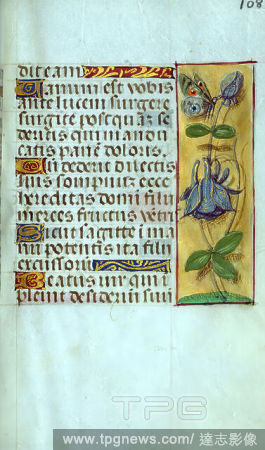 108
dite am
Vanum est vobis
ante lucem surgere
surgite postquaz se
deritis qui mandu
catis pane doloris.
Cum dederit dilectis
suis somnum: ecce
hereditas domini filii
merces fructus vetri
Sicut sagitte i ma
nu potentis ita filii
excussorū
Beatus vir qui i
pleuit desideriū suū
TPG
www.tpgnews.com / 達志影像